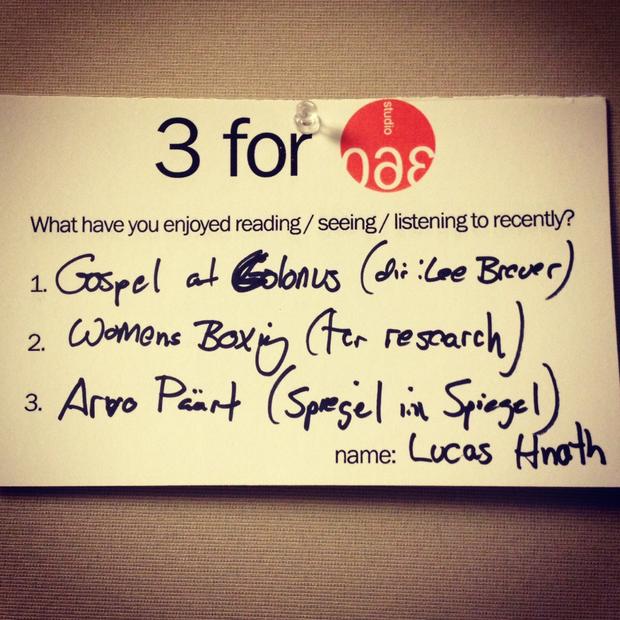 3 for studio 360
What have you enjoyed reading / seeing / listening to recently?
1. Gospel at Colonus (dir: Lee Breuer)
2. Womens Boxing (for research)
3. Arvo Päart (Spiegel im Spiegel)
name: Lucas Hnath